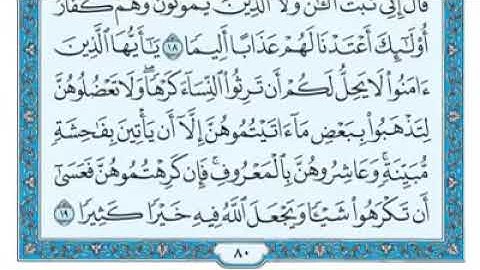 قَالَ إِنِّي تُبْتُ ٱلْـَٰٔنَ وَلَا ٱلَّذِينَ يَمُوتُونَ وَهُمْ كُفَّارٌ
أُو۟لَٰٓئِكَ أَعْتَدْنَا لَهُمْ عَذَابًا أَلِيمًا ١٨ يَٰٓأَيُّهَا ٱلَّذِينَ
ءَامَنُوا۟ لَا يَحِلُّ لَكُمْ أَن تَرِثُوا۟ ٱلنِّسَآءَ كَرْهًا ۖ وَلَا تَعْضُلُوهُنَّ
لِتَذْهَبُوا۟ بِبَعْضِ مَآ ءَاتَيْتُمُوهُنَّ إِلَّآ أَن يَأْتِينَ بِفَٰحِشَةٍ
مُّبَيِّنَةٍ ۚ وَعَاشِرُوهُنَّ بِٱلْمَعْرُوفِ ۚ فَإِن كَرِهْتُمُوهُنَّ فَعَسَىٰٓ
أَن تَكْرَهُوا۟ شَيْـًٔا وَيَجْعَلَ ٱللَّهُ فِيهِ خَيْرًا كَثِيرًا ١٩
٨٠